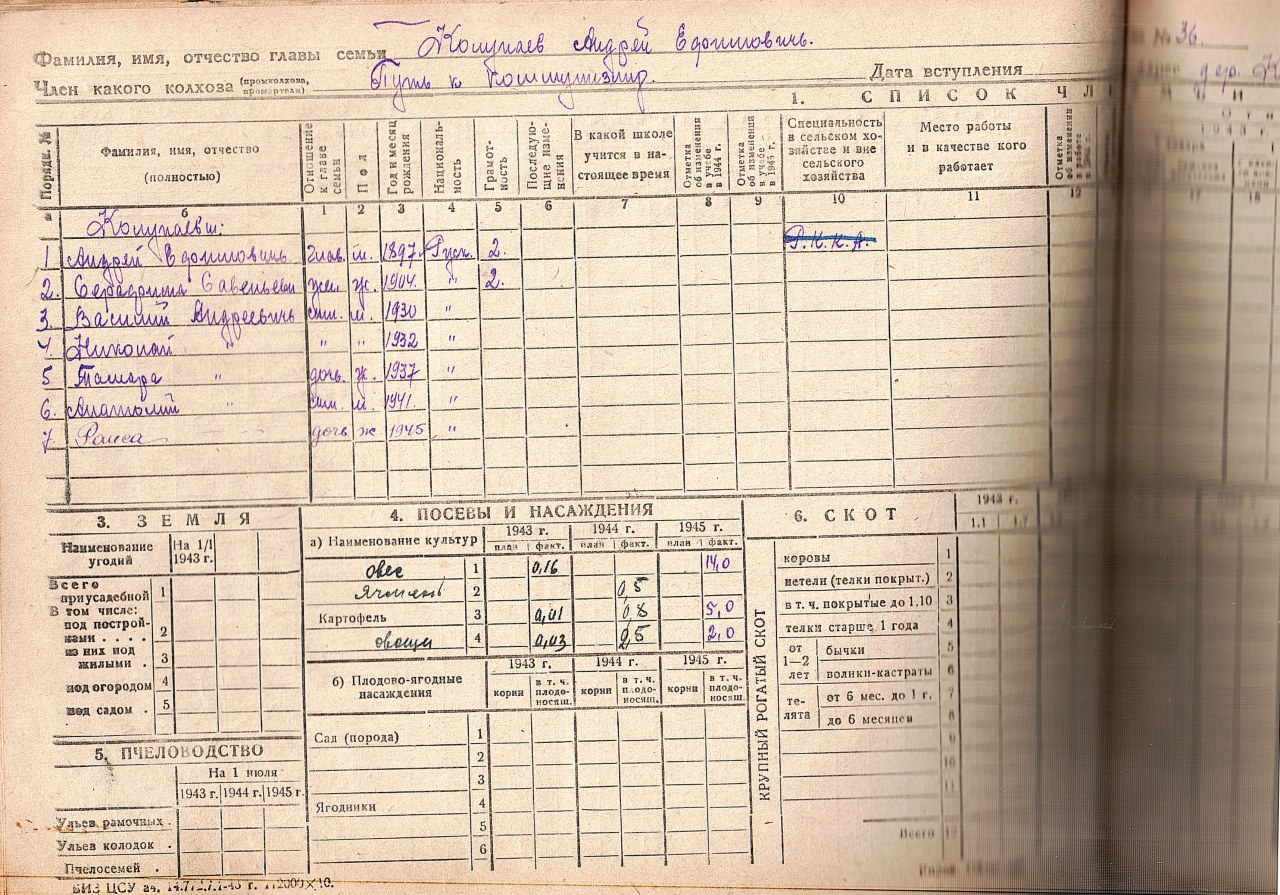 Фамилия, имя, отчество главы семьи Колупаев Андрей
Член какого колхоза (промколхоза, промартели) Путь к Коммунизму.
Дата вступления
№ 36
дер.
1. СПИСОК ЧЛ
Порядк. №
Фамилия, имя, отчество (полностью)
Отношение к главе семьи
Пол
Год и месяц рождения
Националь-ность
Грамот-ность
Последую-щие изме-нения
В какой школе учится в на-стоящее время
Отметка об изменении в учебе в 1944 г.
Отметка об изменении в учебе в 1945 г.
Специальность в сельском хо-зяйстве и вне сельского хозяйства
Место работы и в качестве кого работает
Отметка об изменении
а б 1 2 3 4 5 6 7 8 9 10 11 12 17 18
Колупаевы:
1 Андрей глав. м. 1897 Русск. 2. Р.К.К.А.
2. Серафима Савельевн жен ж. 1904. " 2.
3. Василий Андреевичь сын. м. 1930 "
4 Николай " " " 1932 "
5 Тамара " дочь. ж. 1937 "
6. Анатолий " сын. м. 1941. "
7. Раиса дочь ж 1945 "
3. ЗЕМЛЯ
Наименование угодий На 1/I 1943 г.
Всего приусадебной 1
В том числе: под построй-ками . . . . 2
из них под жилыми . 3
под огородом 4
под садом . 5
4. ПОСЕВЫ И НАСАЖДЕНИЯ
а) Наименование культур 1943 г. 1944 г. 1945 г.
план факт. план факт. план факт.
овес 1 0,16 14,0
Ячмень 2 0,5
Картофель 3 0,01 0,8 5,0
овощи 4 0,03 0,5 2,0
б) Плодово-ягодные насаждения 1943 г. 1944 г. 1945 г.
корни в т. ч. плодо-носящ. корни в т. ч. плодо-носящ. корни в т. ч. плодо-носящ.
Сад (порода) 1
2
3
Ягодники 4
5
6
5. ПЧЕЛОВОДСТВО
На 1 июля
1943 г. 1944 г. 1945 г.
Ульев рамочных .
Ульев колодок .
Пчелосемей .
6. СКОТ
1943 г.
1.I 1.7
КРУПНЫЙ РОГАТЫЙ СКОТ
коровы 1
нетели (телки покрыт.) 2
в т. ч. покрытые до 1.10 3
телки старше 1 года 4
от 1—2 лет бычки 5
волики-кастраты 6
те-лята от 6 мес. до 1 г. 7
до 6 месяцев 8
9
10
11
Всего 12